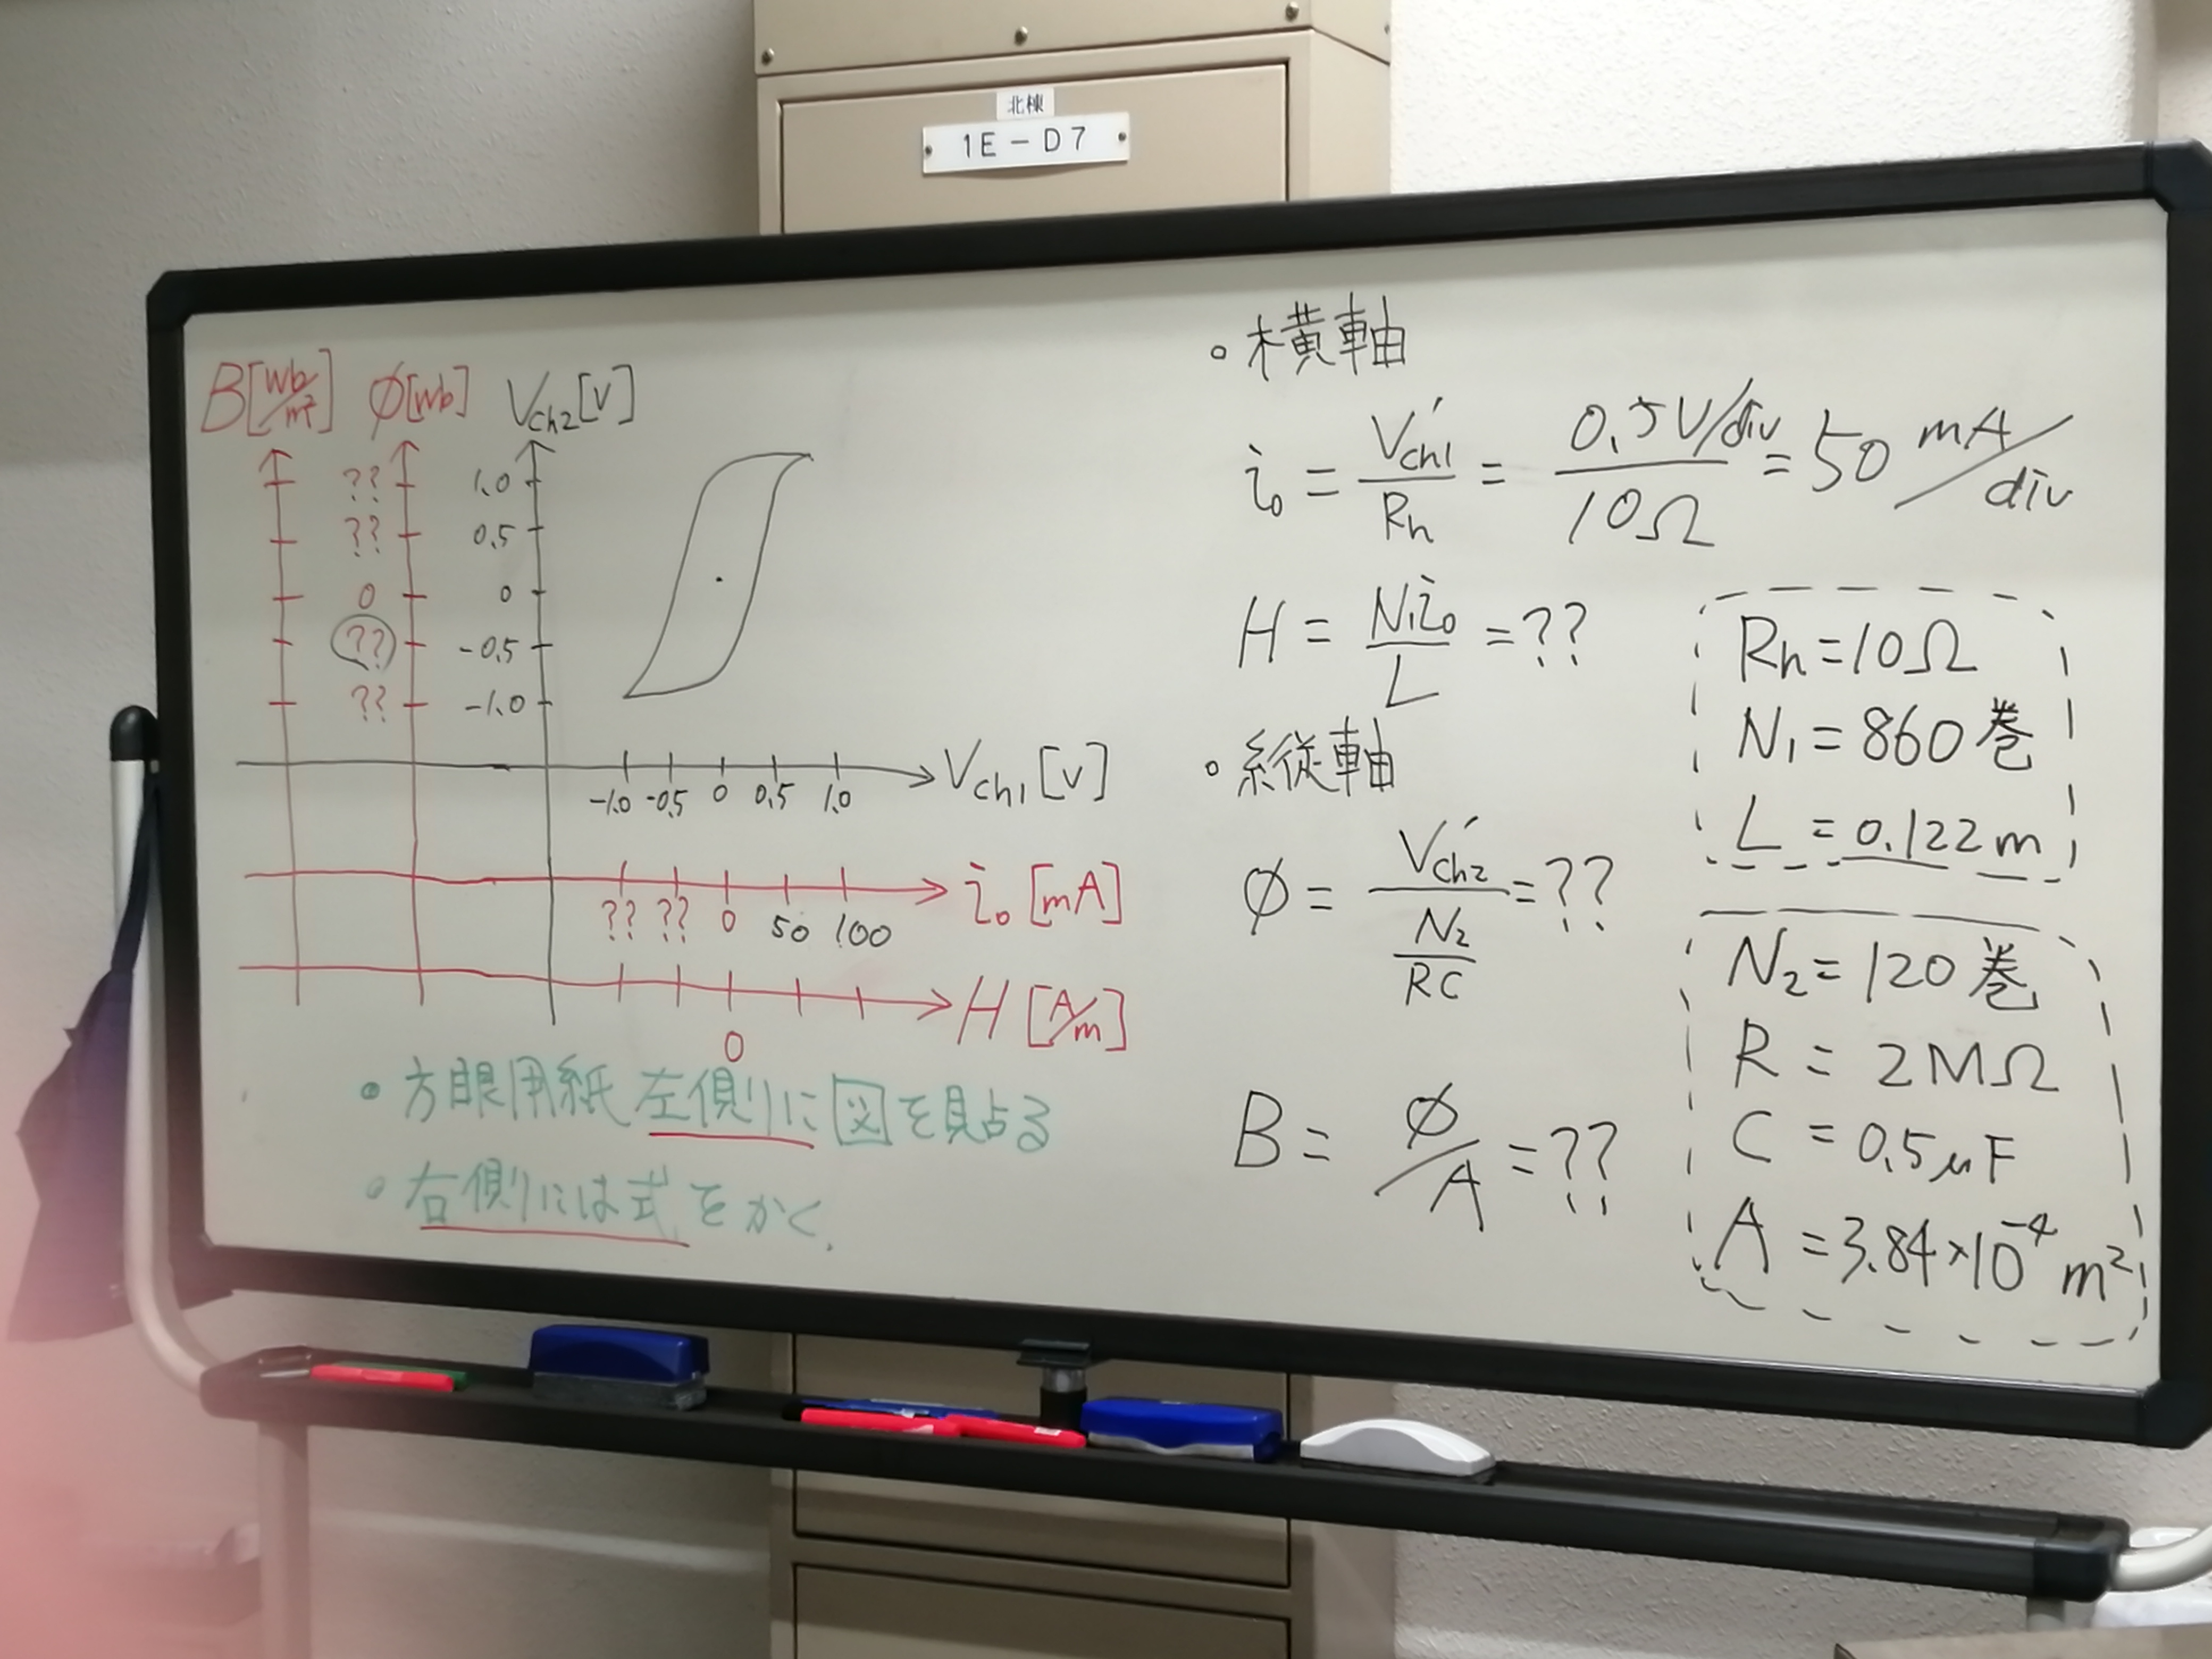 北棟
1E-D7
B[Wb/m²] φ[Wb] Vch2[V]
?? 1.0
?? 0.5
0 0
?? -0.5
?? -1.0
-1.0 -0.5 0 0.5 1.0 Vch1[V]
?? ?? 0 50 100 i₀[mA]
0 H[A/m]
• 方眼用紙 左側に図を貼る
• 右側には式をかく.
• 横軸
i₀ = V'ch1/Rh = 0.5V/div/10Ω = 50 mA/div
H = N₁i₀/L = ??
• 縦軸
φ = V'ch2/(N₂/RC) = ??
B = φ/A = ??
Rh = 10Ω
N₁ = 860巻
L = 0.122m
N₂ = 120巻
R = 2MΩ
C = 0.5μF
A = 3.84×10⁻⁴ m²